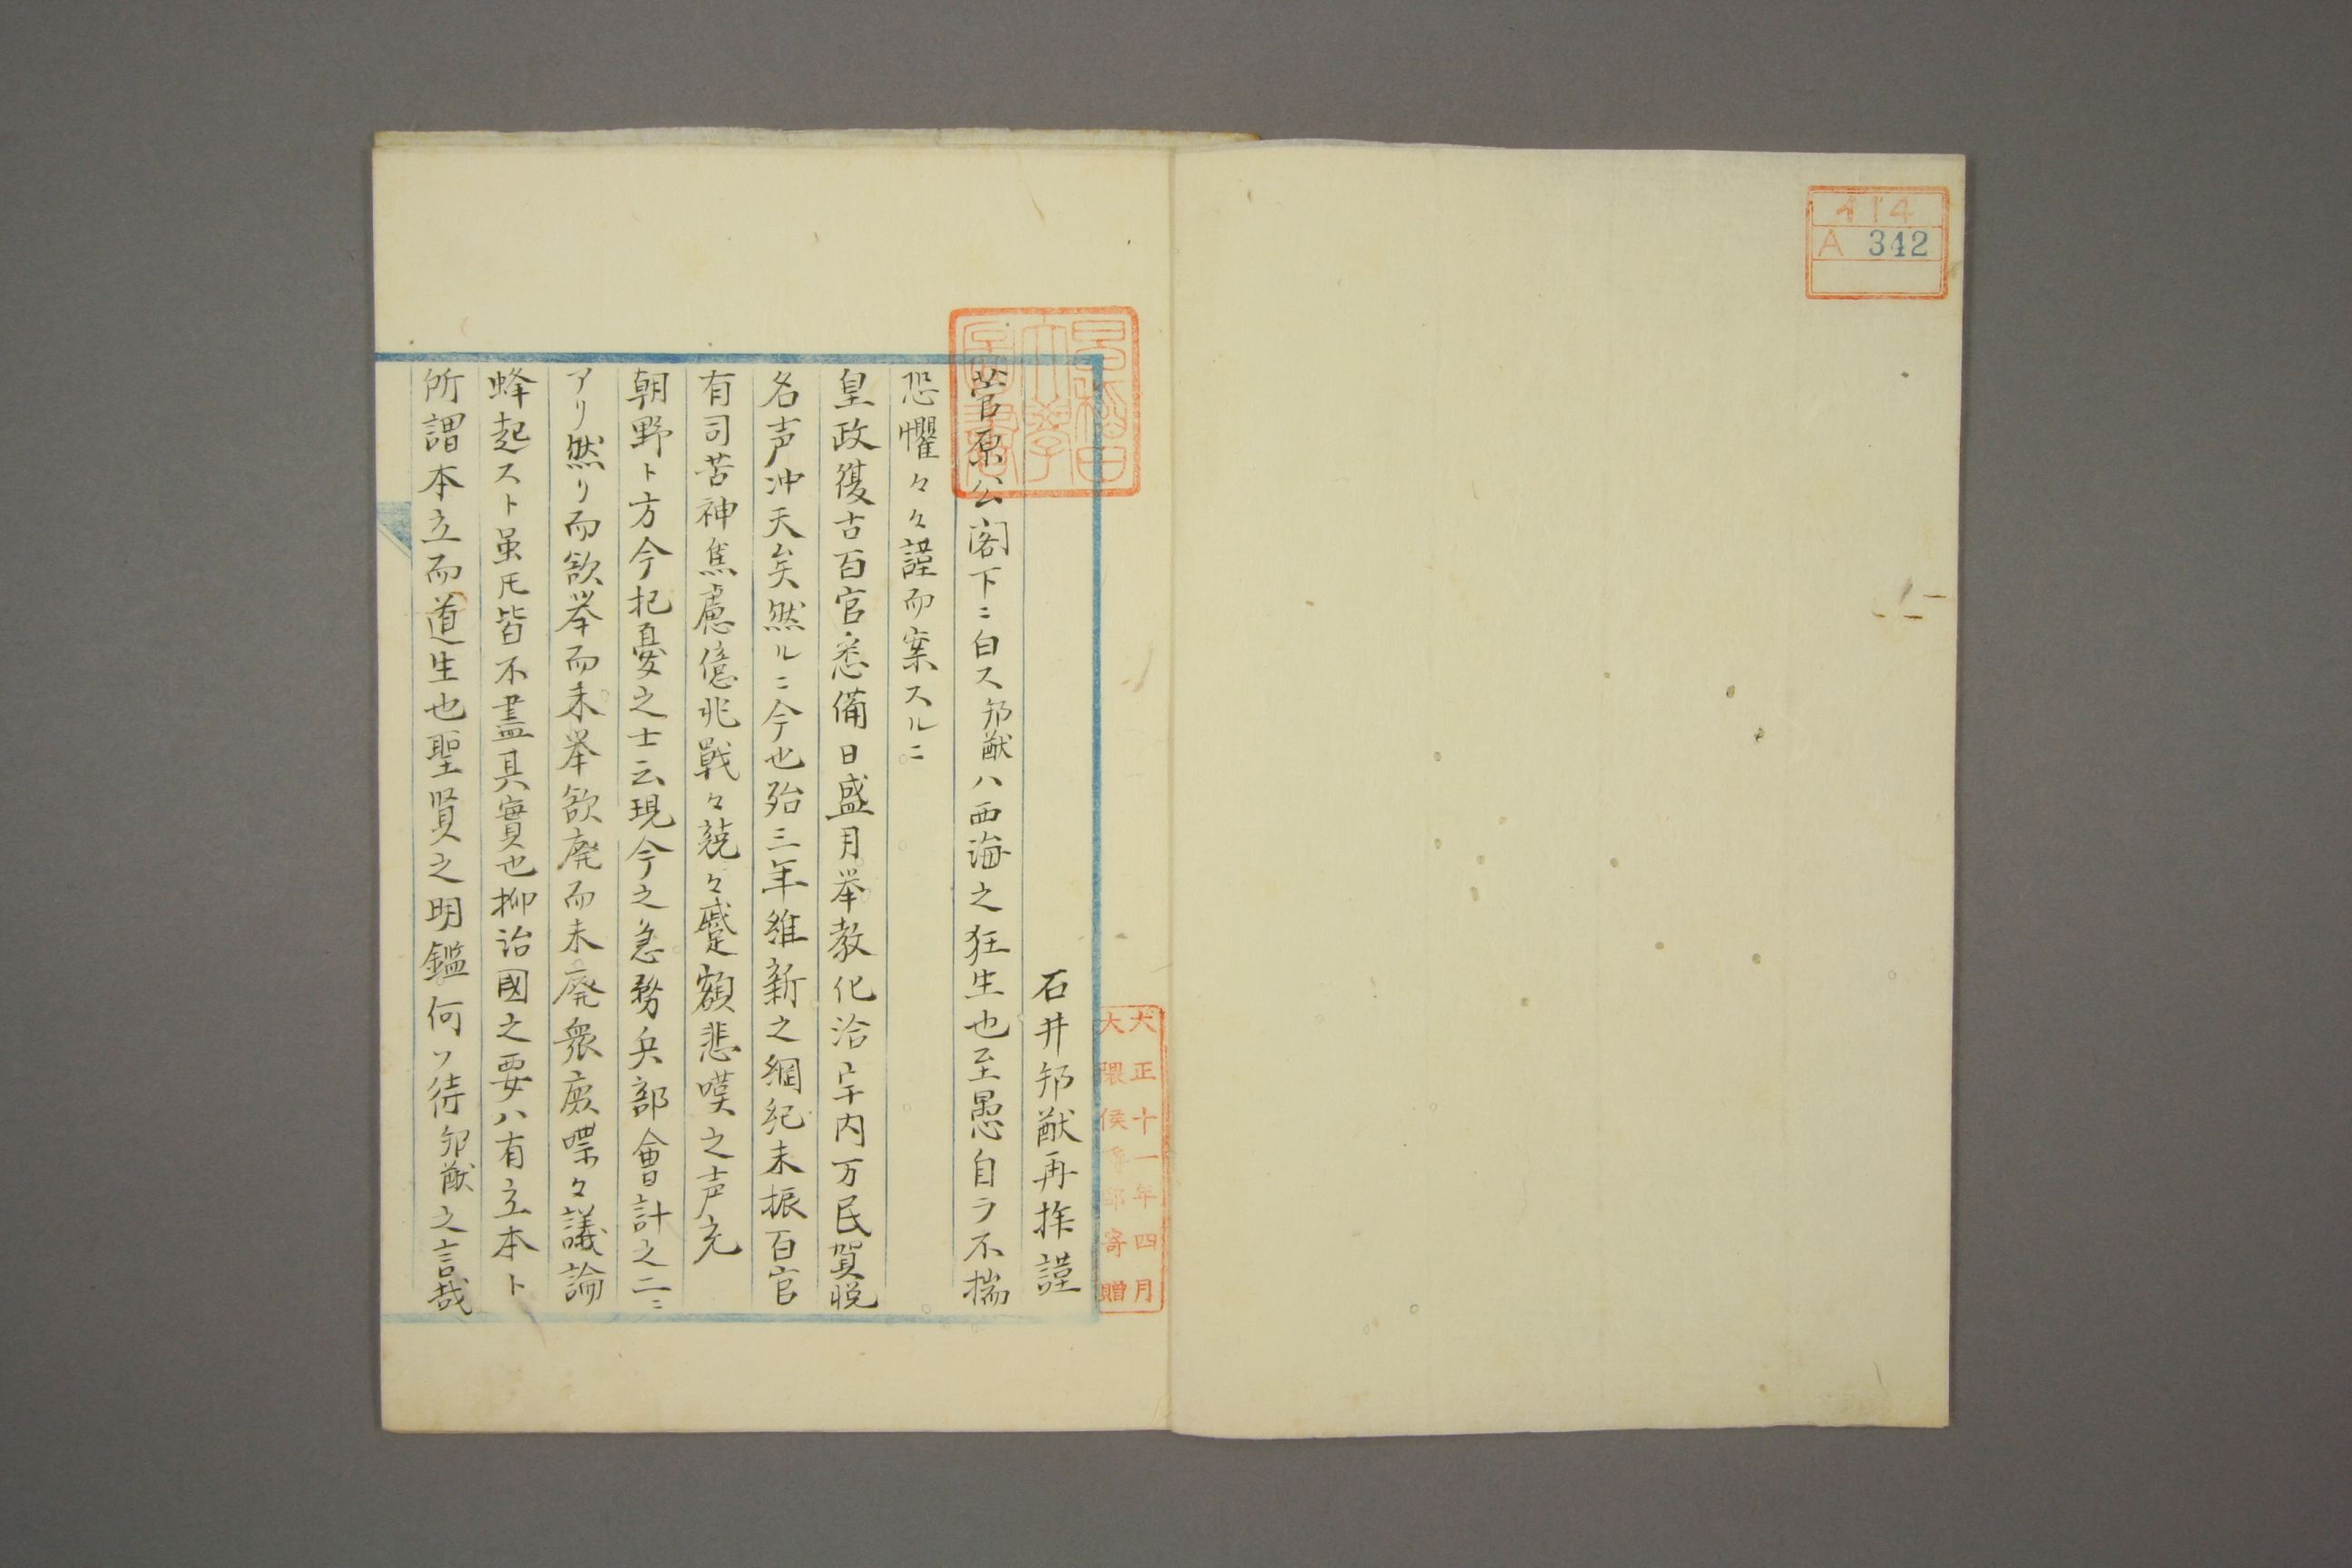 414
A 342
早稲田
大學
圖書
大正十一年四月
大隈侯爵邸寄贈
石井邦猷再拝謹
菅原公閣下ニ白ス邦猷ハ西海之狂生也至愚自ラ不揣
恐懼々々謹而案スルニ
皇政復古百官悉備日盛月挙教化洽宇内万民賀悦
名声冲天矣然ルニ今也殆三年維新之綱紀未振百官
有司苦神焦慮億兆戦々兢々蹙額悲嘆之声充
朝野ト方今杞憂之士云現今之急務兵部會計之二ニ
アリ然リ而欲挙而未挙欲廃而未廃衆庶喋々議論
蜂起スト虽𪜈皆不盡其實也抑治國之要ハ有立本ト
所謂本立而道生也聖賢之明鑑何ソ待邦猷之言哉